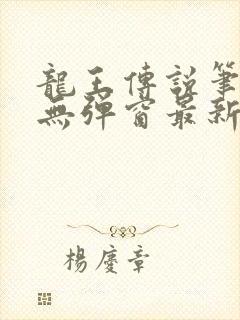 龍王傳説筆
無彈窗最新
楊慶章